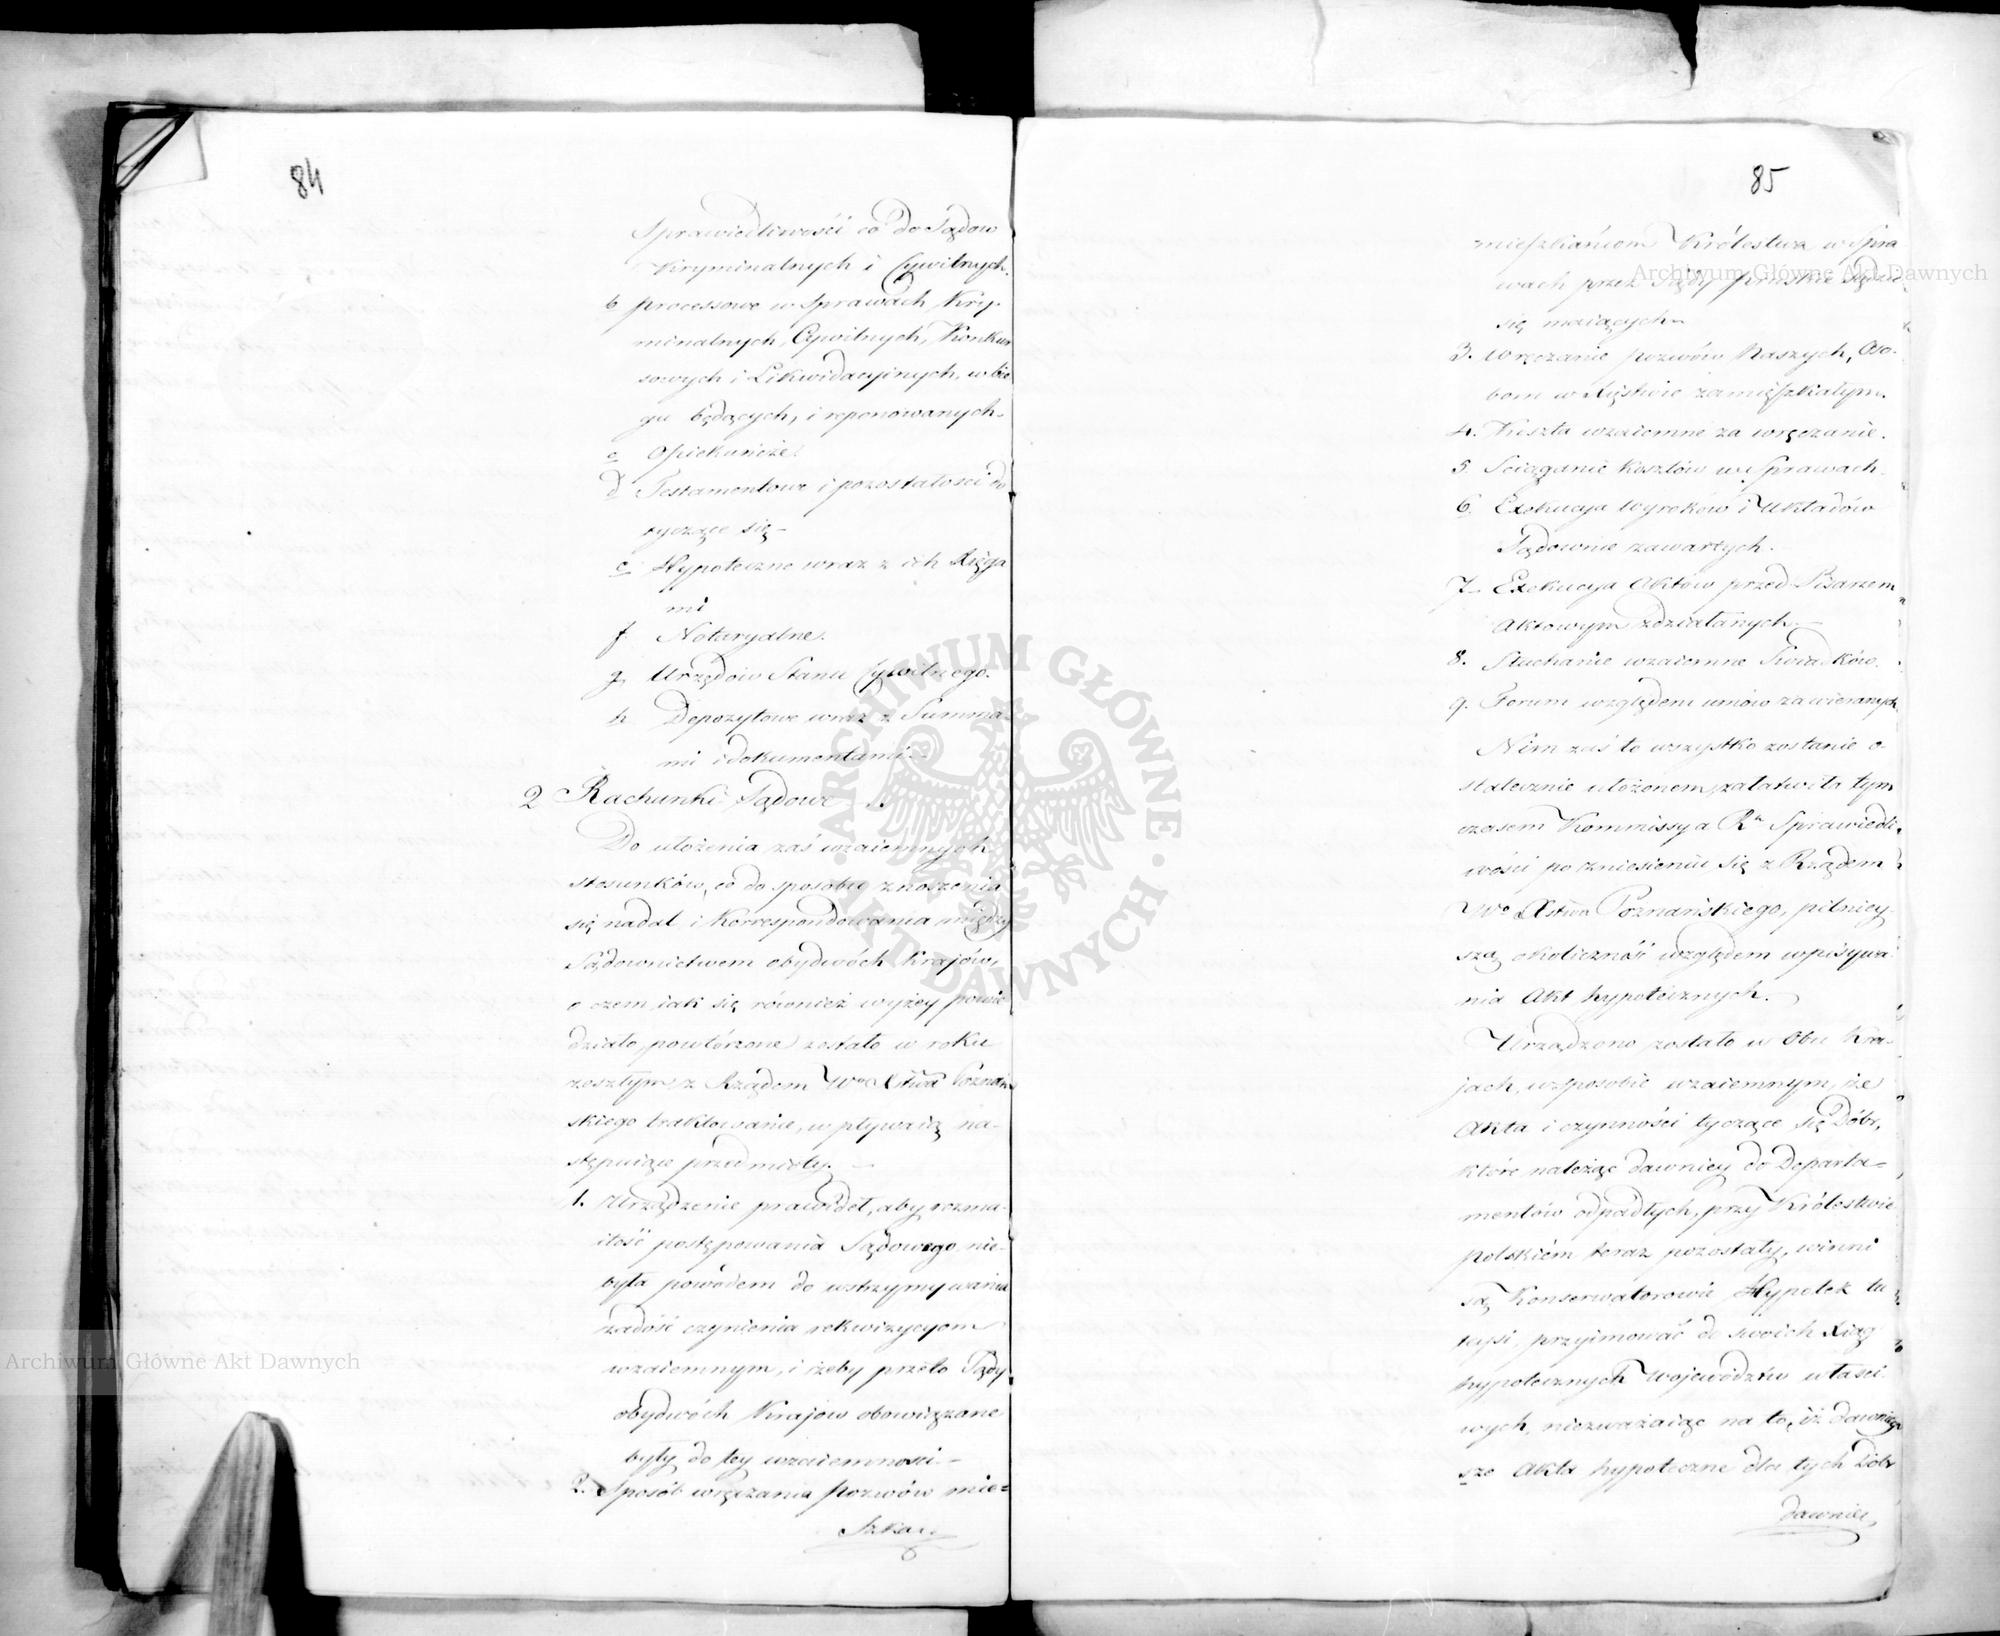 84
Sprawiedliwości co do Sądow
Kryminalnych i Cywilnych.
b processowe w Sprawach Kry-
minalnych, Cywilnych, Konkur
sowych i Likwidacyinych, w bie
gu będących, i reponowanych.
c Opiekuńcze.
d Testamentowe i pozostałości do
tyczące się –
e Hypoteczne wraz z ich Xięga
mi
f. Notaryalne.
g. Urzędów Stanu Cywilnego.
h Depozytowe wraz z Summa-
mi i dokumentami. –
2 Rachunki Sądowe
Do ułożenia zaś wzaiemnych
stosunków, co do sposobu znoszenia
się nadal i korrespondowania między
Sądownictwem obydwóch Krajów,
o czem iak się również wyżey powie
działo, powtórzone zostało w roku
zeszłym, z Rządem Wgo Xstwa Poznań
skiego traktowanie, wpływaią na-
stępuiące przedmioty. –
1. Urządzenie prawideł, aby rozma-
itość postępowania Sądowego nie-
była powodem do wstrzymywania
zadość czynienia rekwizycyom
wzaiemnym, i żeby przeto Sądy
obydwóch Krajow obowiązane
były do tey wzaiemności. –
2. Sposób wręczania pozwów mie=
szkań
85
mieszkańcom Królestwa w Spra
wach przez Sądy pruskie sądzić
się maiących.
3. Wręczanie pozwów Naszych, Oso-
bom w Xięstwie zamieszkałym.
4. Koszta wzaiemne za wręczanie.
5. Sciąganie kosztów w Sprawach.
6. Exekucya Wyroków i Układów
Sądownie zawartych.
7. Exekucya Aktów przed Pisarzem
Aktowym zdziałanych. –
8. Słuchanie wzaiemne Świadków.
9. Forum względem umów zawieranych
Nim zaś to wszystko zostanie o-
statecznie ułożonem, załatwiła tym
czasem Kommissya R. Sprawiedli-
wości po zniesieniu się z Rządem
Wgo Xstwa Poznańskiego, pilniey-
szą okoliczność względem wpisywa-
nia Akt hypotecznych. –
Urządzono zostało w Obu Kra-
jach, w sposobie wzaiemnym, że
Akta i czynności tyczące się Dóbr,
które należąc dawniey do Departa-
mentów odpadłych, przy Królestwie
polskiém teraz pozostały, winni
są Konserwatorowie Hypotek tu
teysi, przyimować do swoich Xiąg
hypotecznych Województw właści-
wych, niezważaiąc na to, iż dawniey
sze Akta hypoteczne dla tych Dóbr
dawniey
Archiwum Główne Akt Dawnych
Archiwum Główne Akt Dawnych
ARCHIWUM GŁÓWNE · AKT DAWNYCH ·